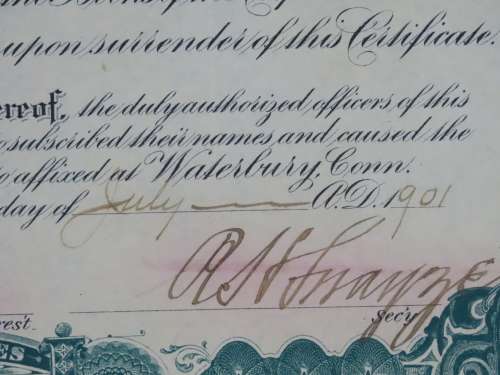 upon surrender of this Certificate.
ereof, the duly authorized officers of this
subscribed their names and caused the
affixed at Waterbury, Conn.
day of July A.D. 1901
Sec'y